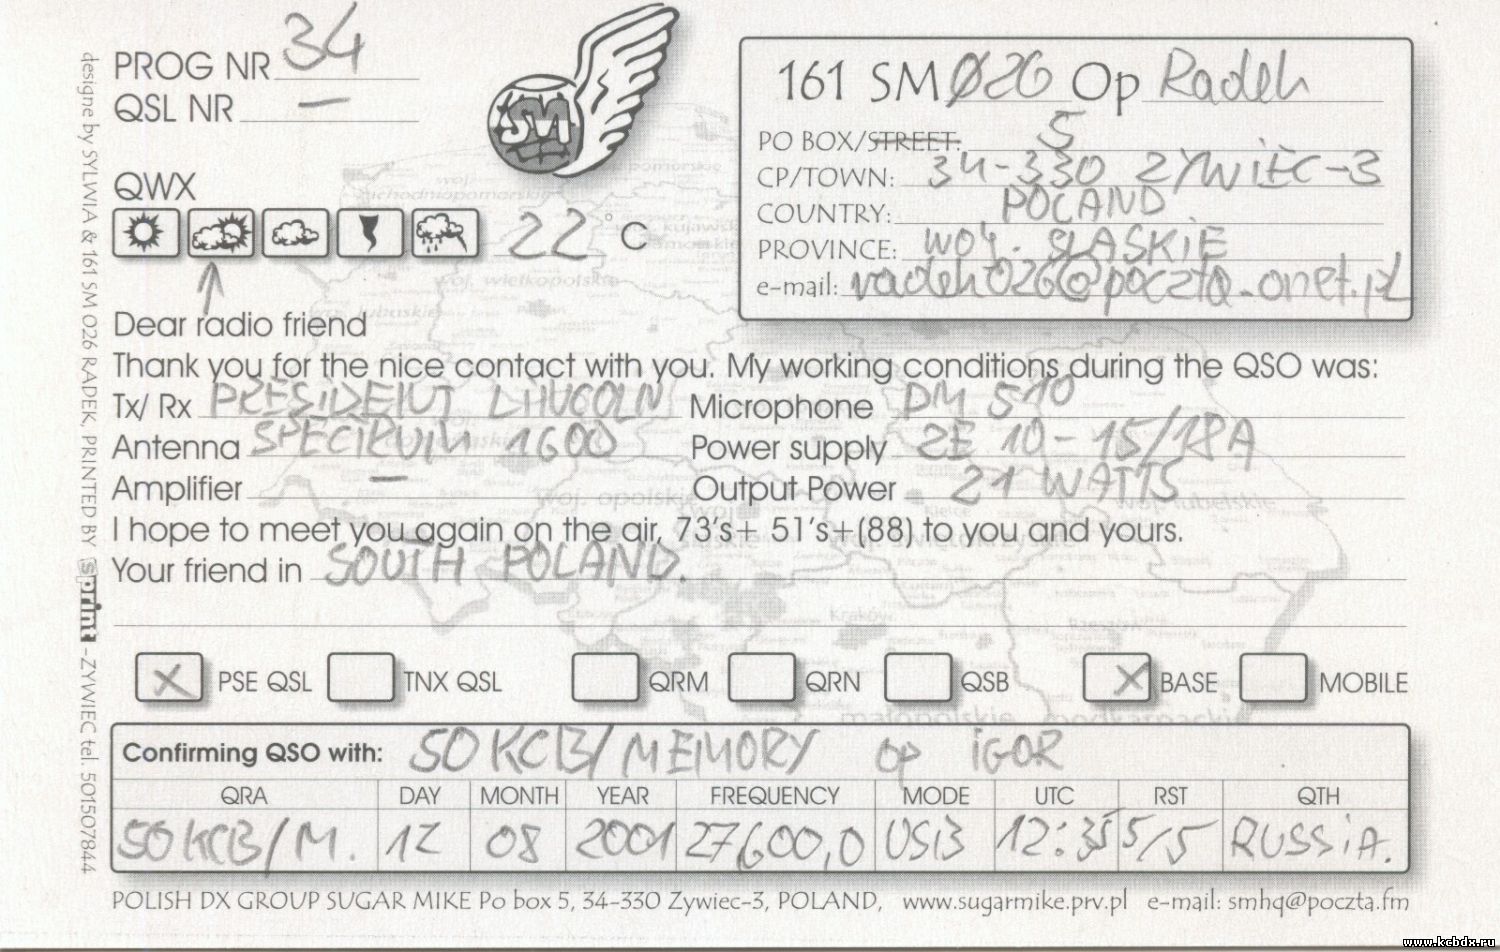 PROG NR 34
QSL NR —
SM
QWX
22 °C
161 SM Ø26 Op Radek
PO BOX/STREET: 5
CP/TOWN: 34-330 ZYWIEC-3
COUNTRY: POLAND
PROVINCE: WOJ. SLASKIE
e-mail: radek026@poczta.onet.pl
Dear radio friend
Thank you for the nice contact with you. My working conditions during the QSO was:
Tx/ Rx PRESIDENT LINCOLN Microphone DM 510
Antenna SPECTRUM 1600 Power supply ZE 10-15/18A
Amplifier — Output Power 21 WATTS
I hope to meet you again on the air, 73's+ 51's+(88) to you and yours.
Your friend in SOUTH POLAND.
X PSE QSL TNX QSL QRM QRN QSB X BASE MOBILE
Confirming QSO with: 50 KCB/MEMORY op IGOR
QRA DAY MONTH YEAR FREQUENCY MODE UTC RST QTH
50 KCB/M. 12 08 2001 27,600,0 USB 12:35 5/5 RUSSiA.
POLISH DX GROUP SUGAR MIKE Po box 5, 34-330 Zywiec-3, POLAND, www.sugarmike.prv.pl e-mail: smhq@poczta.fm
designe by SYLWIA & 161 SM 026 RADEK, PRINTED BY sprint -ZYWIEC tel. 501507844
www.kcbdx.ru